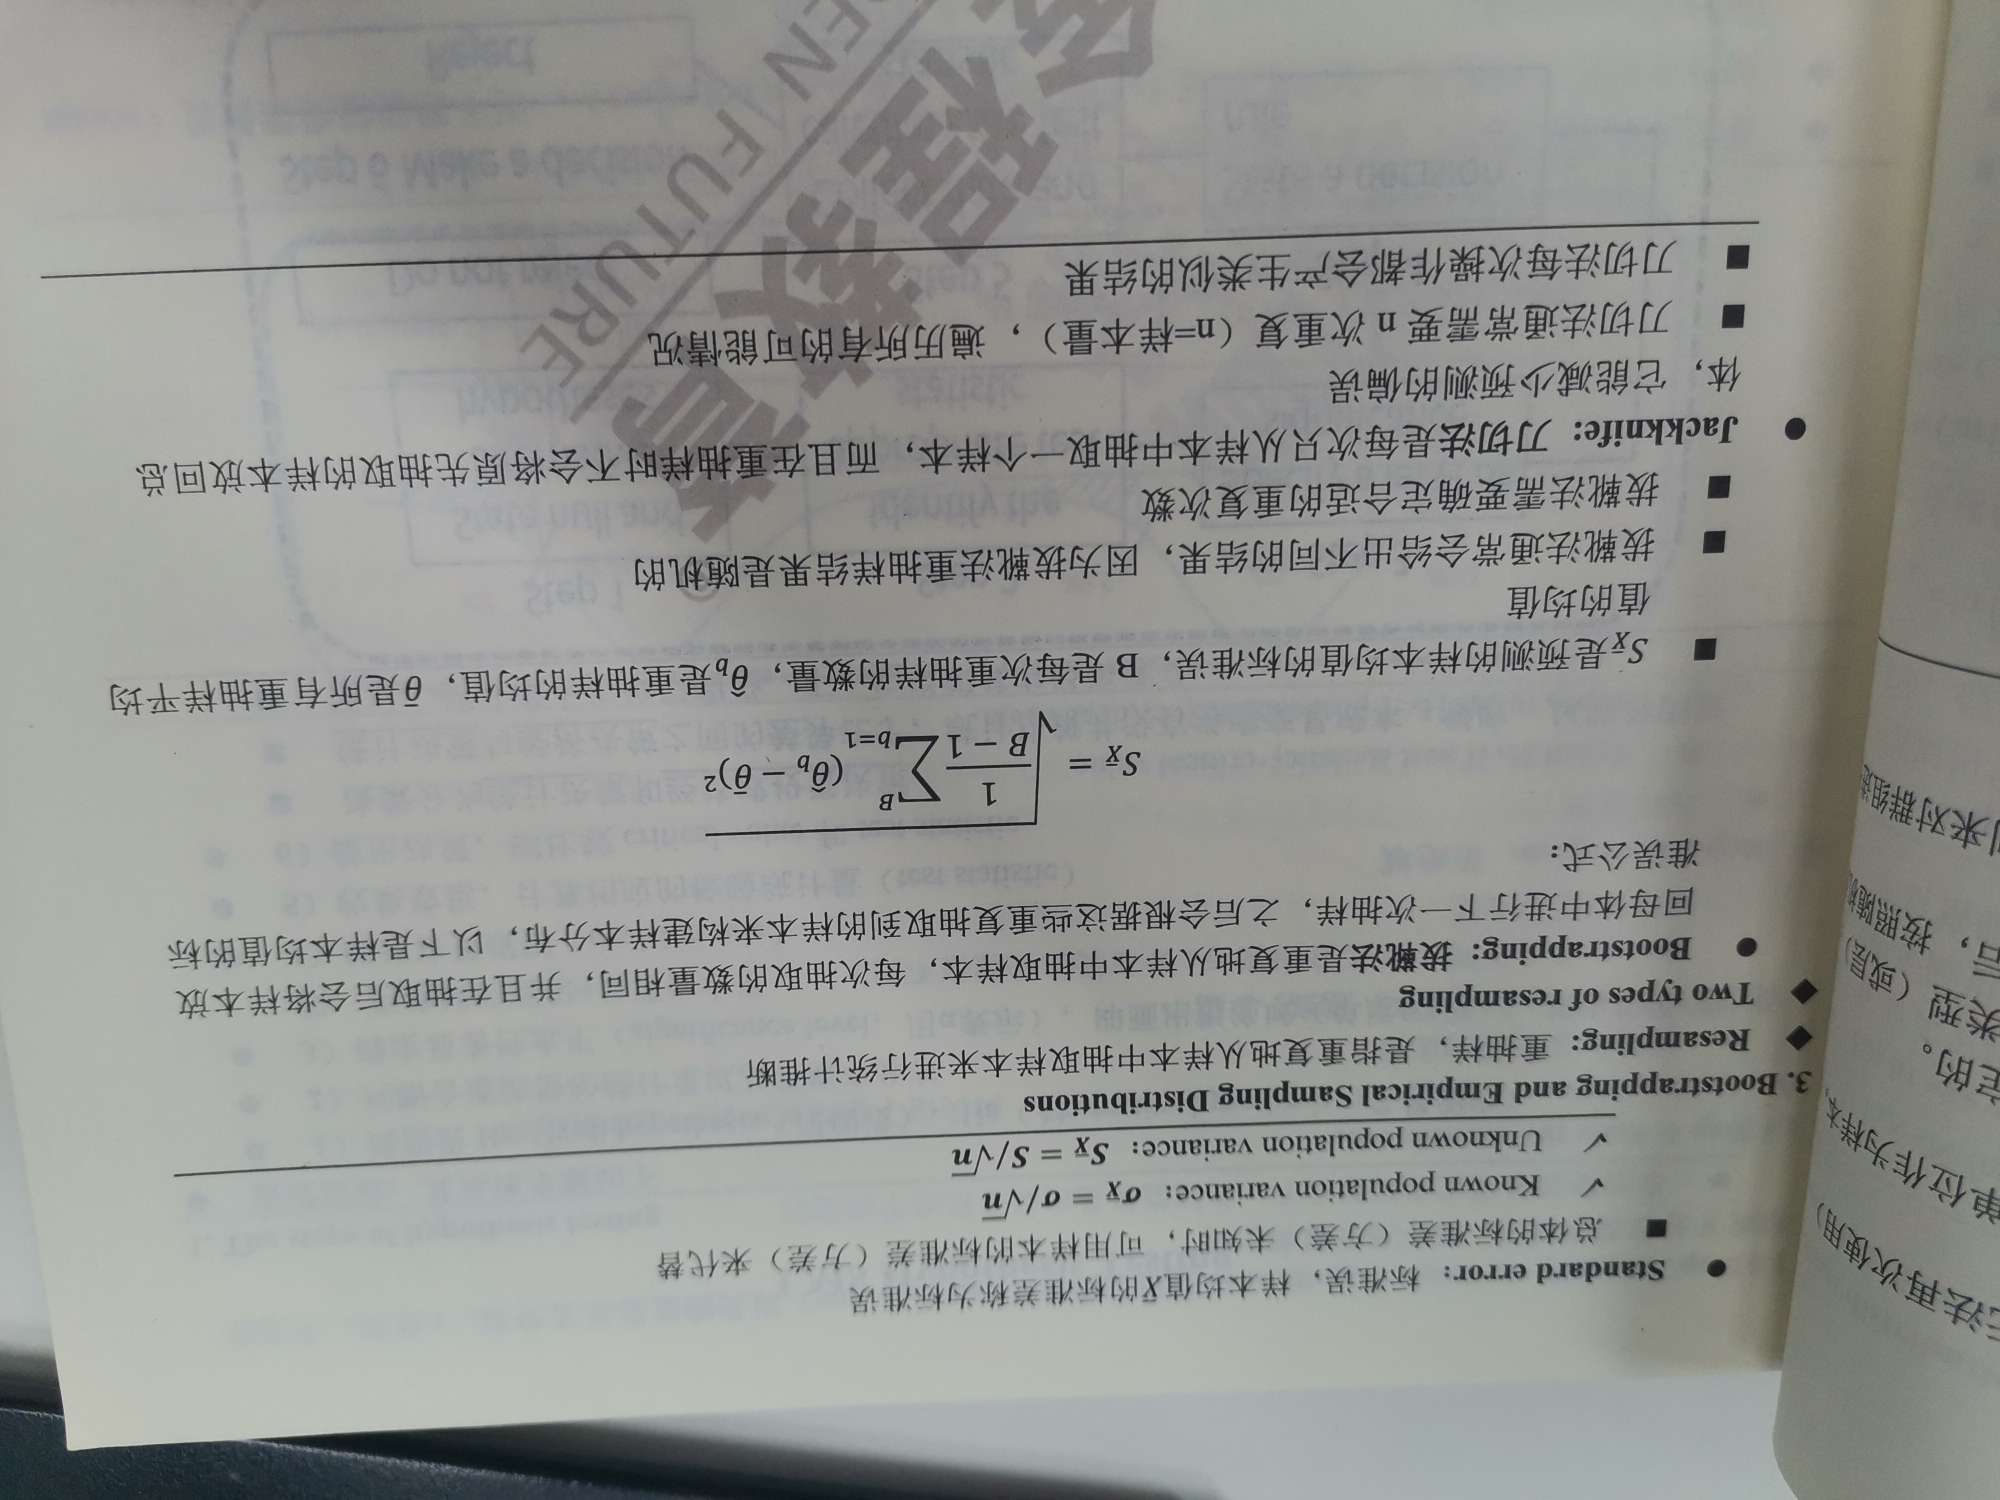 Standard error: 标准误，样本均值X̄的标准差称为标准误
总体的标准差（方差）未知时，可用样本的标准差（方差）来代替
Known population variance: σ_X̄ = σ/√n
Unknown population variance: S_X̄ = S/√n
3. Bootstrapping and Empirical Sampling Distributions
Resampling: 重抽样，是指重复地从样本中抽取样本来进行统计推断
Two types of resampling
Bootstrapping: 拔靴法是重复地从样本中抽取样本，每次抽取的数量相同，并且在抽取后会将样本放
回母体中进行下一次抽样，之后会根据这些重复抽取到的样本来构建样本分布，以下是样本均值的标
准误公式：
S_X̄ = √(1/(B − 1) ∑_{b=1}^{B} (θ̂_b − θ̄)²)
S_X̄是预测的样本均值的标准误，B 是每次重抽样的数量，θ̂_b是重抽样的均值，θ̄是所有重抽样平均
值的均值
拔靴法通常会给出不同的结果，因为拔靴法重抽样结果是随机的
拔靴法需要确定合适的重复次数
Jackknife: 刀切法是每次只从样本中抽取一个样本，而且在重抽样时不会将原先抽取的样本放回总
体，它能减少预测的偏误
刀切法通常需要 n 次重复（n=样本量），遍历所有的可能情况
刀切法每次操作都会产生类似的结果
金程教育
GOLDEN FUTURE
法再次使用）
单位作为样本，
定的。
类型（或层）
后，按照随机
来对群组